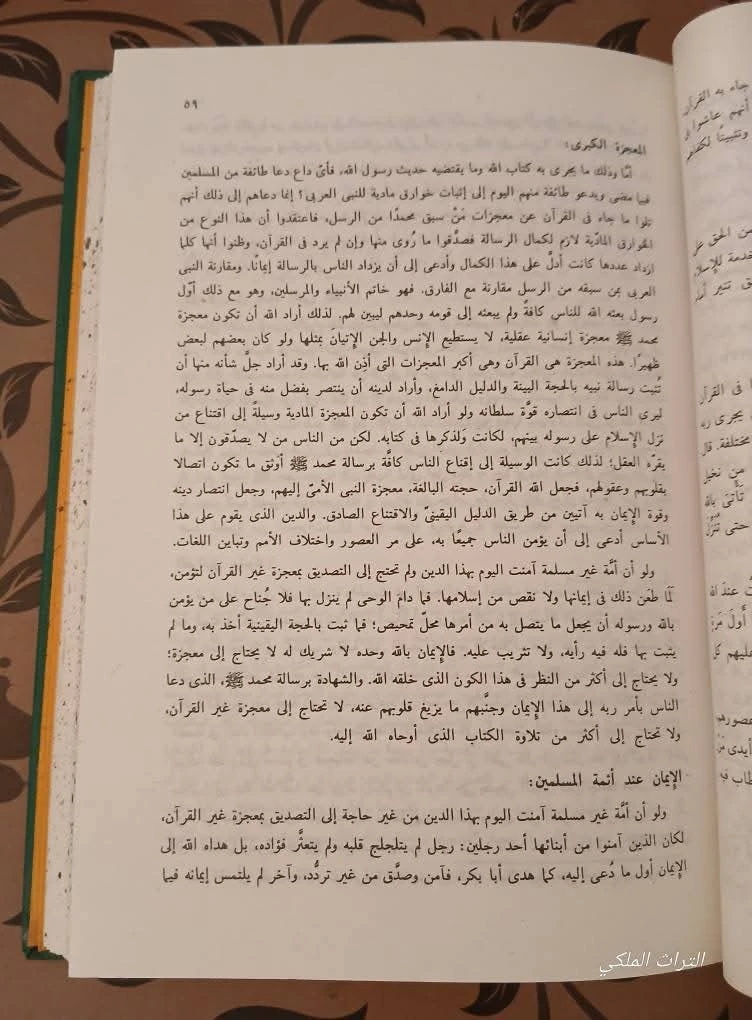 ٥٩
المعجزة الكبرى:
أمّا وذلك ما يجرى به كتاب الله وما يقتضيه حديث رسول الله، فأىّ داع دعا طائفة من المسلمين
فيما مضى ويدعو طائفة منهم اليوم إلى إثبات خوارق مادية للنبى العربى؟ إنما دعاهم إلى ذلك أنهم
تلوا ما جاء فى القرآن عن معجزات مَنْ سبق محمدًا من الرسل، فاعتقدوا أن هذا النوع من
الخوارق المادّية لازم لكمال الرسالة فصدَّقوا ما رُوى منها وإن لم يرد فى القرآن، وظنوا أنها كلما
ازداد عددها كانت أدلَّ على هذا الكمال وأدعى إلى أن يزداد الناس بالرسالة إيمانًا. ومقارنة النبى
العربى بمن سبقه من الرسل مقارنة مع الفارق. فهو خاتم الأنبياء والمرسلين، وهو مع ذلك أوّل
رسول بعثه الله للناس كافةً ولم يبعثه إلى قومه وحدهم ليبين لهم. لذلك أراد الله أن تكون معجزة
محمد ﷺ معجزة إنسانية عقلية، لا يستطيع الإنس والجن الإتيانَ بمثلها ولو كان بعضهم لبعض
ظهيرًا. هذه المعجزة هى القرآن وهى أكبر المعجزات التى أذِن الله بها. وقد أراد جلَّ شأنه منها أن
تُثبت رسالة نبيه بالحجة البينة والدليل الدامغ، وأراد لدينه أن ينتصر بفضل منه فى حياة رسوله،
ليرى الناس فى انتصاره قوَّة سلطانه ولو أراد الله أن تكون المعجزة المادية وسيلةً إلى اقتناع من
نزل الإسلام على رسوله بينهم، لكانت وَلذكرها فى كتابه. لكن من الناس من لا يصدّقون إلا ما
يقرّه العقل؛ لذلك كانت الوسيلة إلى إقناع الناس كافَّة برسالة محمد ﷺ أوثق ما تكون اتصالا
بقلوبهم وعقولهم، فجعل الله القرآن، حجته البالغة، معجزة النبى الأمىّ إليهم، وجعل انتصار دينه
وقوة الإيمان به آتيين من طريق الدليل اليقينىّ والاقتناع الصادق. والدين الذى يقوم على هذا
الأساس أدعى إلى أن يؤمن الناس جميعًا به، على مر العصور واختلاف الأمم وتباين اللغات.
ولو أن أمَّة غير مسلمة آمنت اليوم بهذا الدين ولم تحتج إلى التصديق بمعجزة غير القرآن لتؤمن،
لَمَا طعَن ذلك فى إيمانها ولا نقص من إسلامها. فما دامَ الوحى لم ينزل بها فلا جُناح على من يؤمن
بالله ورسوله أن يجعل ما يتصل به من أمرها محلّ تمحيص؛ فما ثبت بالحجة اليقينية أخذ به، وما لم
يثبت بها فله فيه رأيه، ولا تثريب عليه. فالإيمان بالله وحده لا شريك له لا يحتاج إلى معجزة؛
ولا يحتاج إلى أكثر من النظر فى هذا الكون الذى خلقه الله. والشهادة برسالة محمد ﷺ، الذى دعا
الناس بأمر ربه إلى هذا الإيمان وجنَّبهم ما يزيغ قلوبهم عنه، لا تحتاج إلى معجزة غير القرآن،
ولا تحتاج إلى أكثر من تلاوة الكتاب الذى أوحاه الله إليه.
الإيمان عند أئمة المسلمين:
ولو أن أمَّة غير مسلمة آمنت اليوم بهذا الدين من غير حاجة إلى التصديق بمعجزة غير القرآن،
لكان الذين آمنوا من أبنائها أحد رجلين: رجل لم يتلجلج قلبه ولم يتعثَّر فؤاده، بل هداه الله إلى
الإيمان أول ما دُعى إليه، كما هدى أبا بكر، فآمن وصدَّق من غير تردُّد، وآخر لم يلتمس إيمانه فيما
جاء به القرآن
أنهم عاشوا
من الحق
خدمة للإسلام
تنير
فى القرآن
يجرى ربه
مختلفة. قال
من نخيل
تأتى بالله
حتى تنزل
عند الله
أول مرة
عليهم
عصورهم
أيدى
التراث الملكي